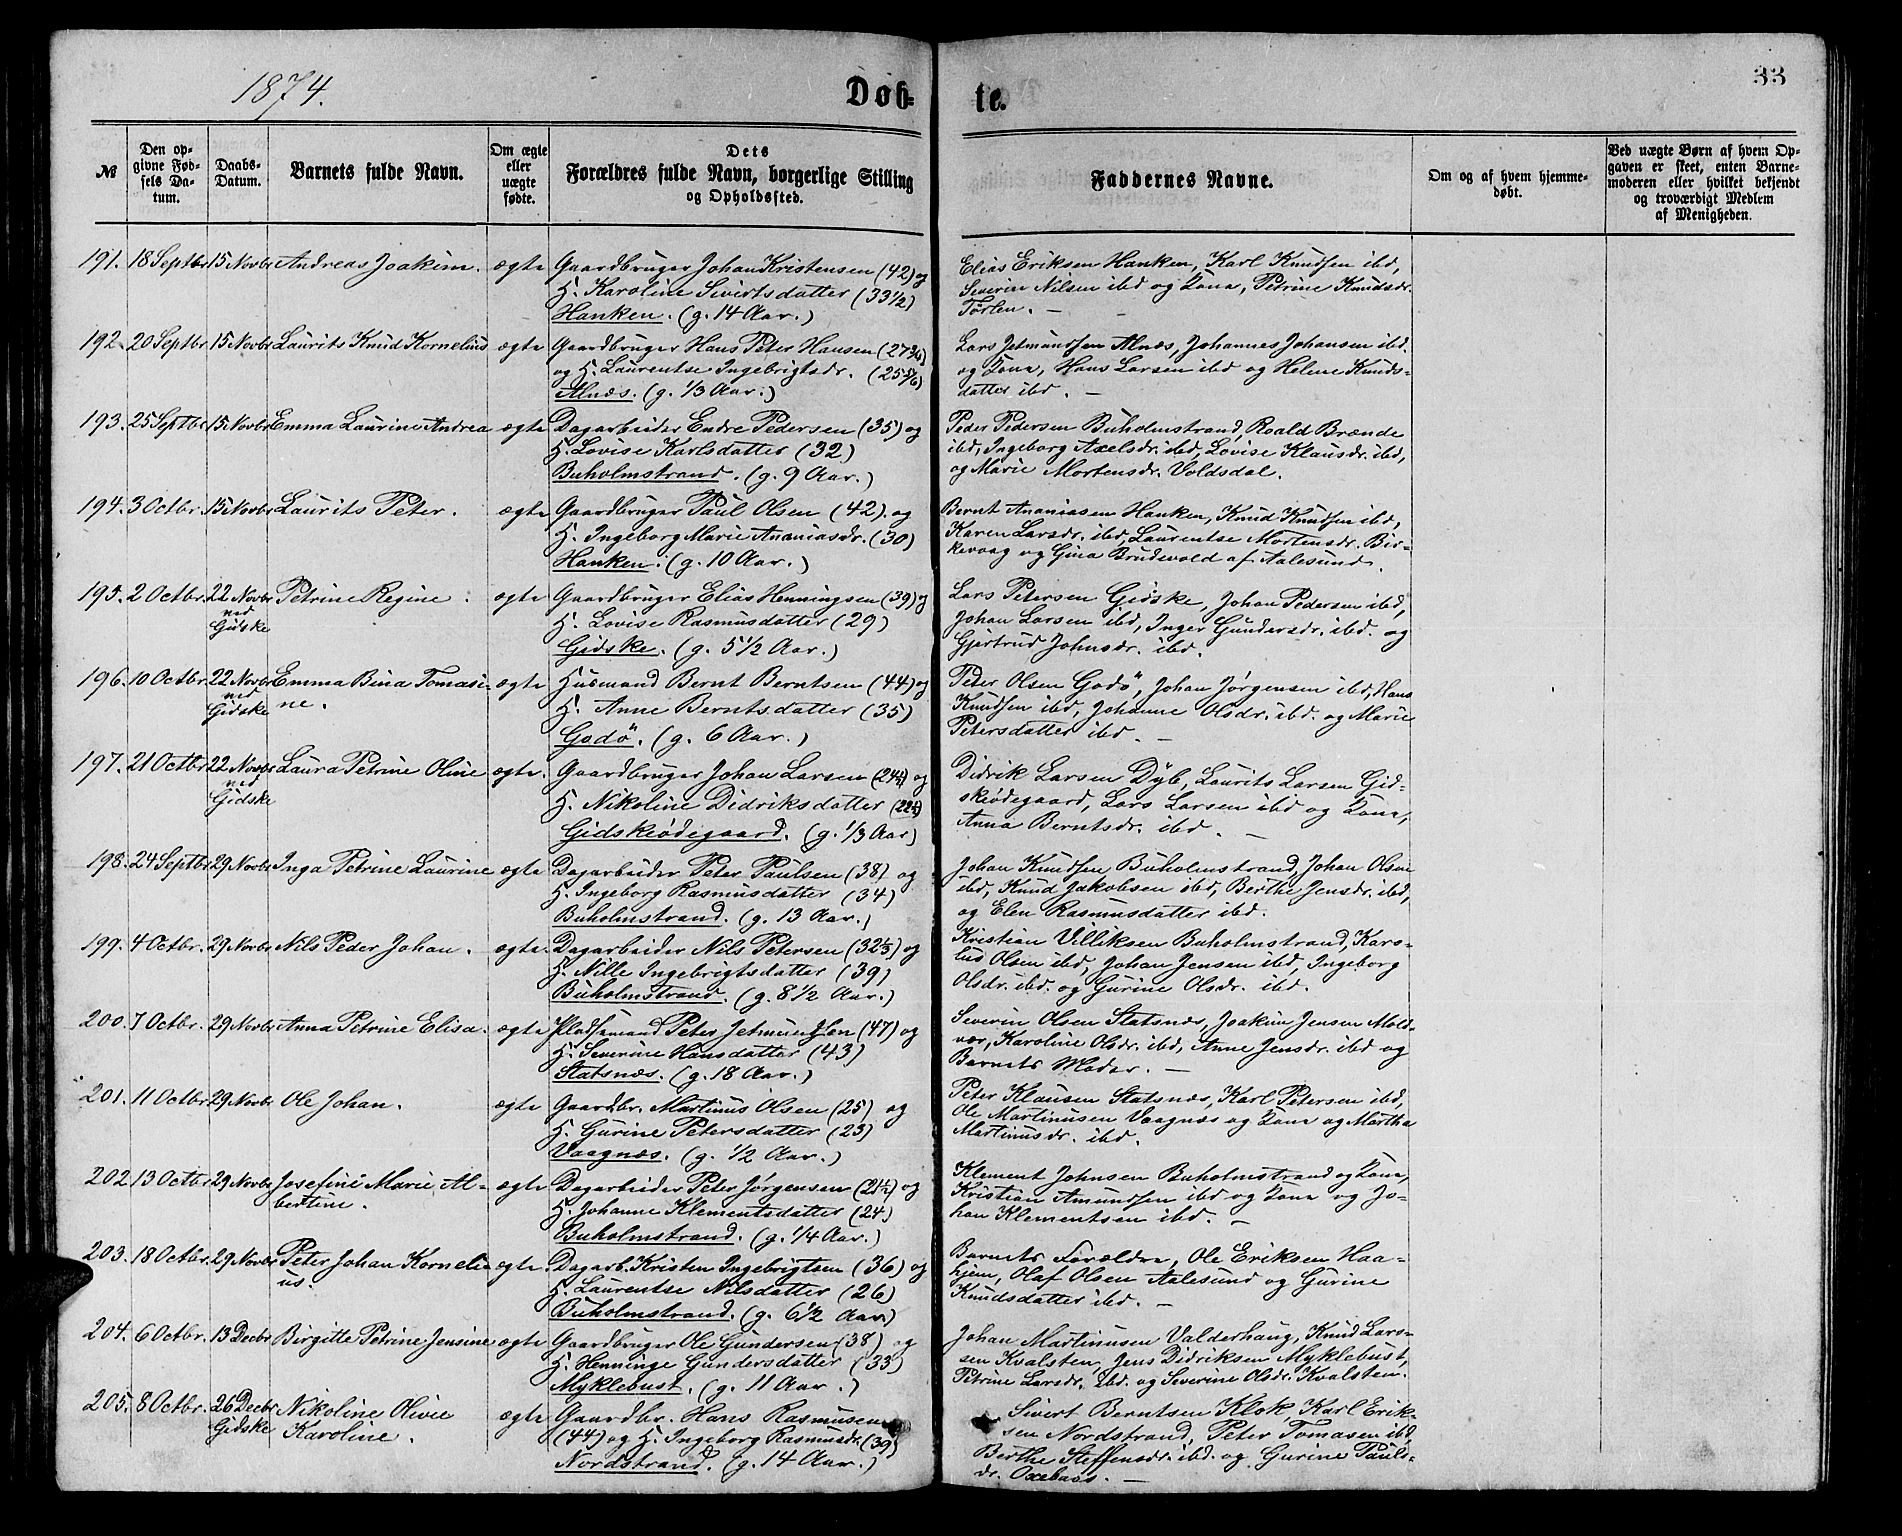 1874.
Døb-
te.
33
№
Den op-
givne Fød-
sels Da-
tum.
Daabs-
Datum.
Barnets fulde Navn.
Om ægte
eller
uægte
fødte.
Dets
Forældres fulde Navn, borgerlige Stilling
og Opholdssted.
Faddernes Navne.
Om og af hvem hjemme-
døbt.
Ved uægte Børn af hvem Op-
gaven er skeet, enten Barne-
moderen eller hvilket bekjendt
og troværdigt Medlem
af Menigheden.
191. 18 Septbr 15 Novbr Andreas Joakim. ægte Gaardbruger Johan Kristensen (42) og
H. Karoline Sivertsdatter (33 1/2)
Hanken. (g. 14 Aar.)
Elias Eriksen Hanken, Karl Knudsen ibd,
Severin Nilsen ibd og Kona, Petrine Knudsdr.
Tørlen. —
192. 20 Septbr. 15 Novbr Laurits Knud Kornelius ægte Gaardbruger Hans Peter Hansen (27 3/4)
og H. Laurentse Ingebrigtsdr. (25 5/6)
Alnæs. (g. 1/3 Aar.)
Lars Jetmundsen Alnæs, Johannes Johansen ibd.
og Kona, Hans Larsen ibd og Helene Knuds-
datter ibd. —
193. 25 Septbr 15 Novbr Emma Laurine Andrea ægte Dagarbeider Endre Pedersen (35) og
H. Lovise Karlsdatter (32)
Buholmstrand. (g. 9 Aar.)
Peder Pedersen Buholmstrand, Roald Brænde
ibd, Ingeborg Axelsdr. ibd, Lovise Klausdr. ibd,
og Marie Mortensdr. Voldsdal.
194. 3 Octbr. 15 Novbr Laurits Peter. ægte Gaardbruger Paul Olsen (42). og
H. Ingeborg Marie Ananiasdr. (30)
Hanken. (g. 10 Aar.)
Bernt Ananiasen Hanken, Knud Knudsen ibd,
Karen Larsdr. ibd, Laurentse Mortensdr. Bir-
kevaag og Gina Brudevold af Aalesund.
195. 2 Octbr. 22 Novbr Petrine Regine. ægte Gaardbruger Elias Henningsen (39) og
ved
Gidske
H. Lovise Rasmusdatter (29)
Gidske. (g. 5 1/2 Aar.)
Lars Petersen Gidske, Johan Pedersen ibd,
Johan Larsen ibd, Inger Gundersdr. ibd. og
Gjertrud Johnsdr. ibd.
196. 10 Octbr. 22 Novbr Emma Bina Tomasi- ægte Husmand Bernt Berntsen (44) og
ved
Gidske
ne.
H. Anne Berntsdatter (35)
Godö. (g. 6 Aar.)
Peter Olsen Godö, Johan Jørgensen ibd, Hans
Knudsen ibd, Johanne Olsdr. ibd. og Marie
Petersdatter ibd. —
197. 21 Octbr 22 Novbr Laura Petrine Oline ægte. Gaardbruger Johan Larsen og
ved
Gidske
H. Nikoline Didriksdatter
Gidskeödegaard. (g. 1/3 Aar)
Didrik Larsen Dyb, Laurits Larsen Gid-
skeödegaard, Lars Larsen ibd og Kona,
Anna Berntsdr. ibd. —
198. 24 Septbr 29 Novbr Inga Petrine Laurine ægte Dagarbeider Peter Paulsen (38) og
H. Ingeborg Rasmusdatter (34)
Buholmstrand. (g. 13 Aar.)
Johan Knudsen Buholmstrand, Johan Olsen
ibd, Knud Jakobsen ibd, Berthe Jensdr. ibd,
og Elen Rasmusdatter ibd.
199. 4 Octbr. 29 Novbr Nils Peder Johan. ægte Dagarbeider Nils Petersen (32 1/3) og
H. Nille Ingebrigtsdatter (39)
Buholmstrand. (g. 8 1/2 Aar.)
Kristian Villiksen Buholmstrand, Karo-
lus Olsen ibd, Johan Jensen ibd, Ingeborg
Olsdr. ibd. og Gurine Olsdr. ibd.
200. 7 Octbr. 29 Novbr Anna Petrine Elisa. ægte Pladsemand Peter Jetmundsen (47) og
H. Severine Hansdatter (43)
Statsnæs. (g. 18 Aar.)
Severin Olsen Statsnæs, Joakim Jensen Mold-
vær, Karoline Olsdr. ibd, Anne Jensdr. ibd og
Barnets Moder. —
201. 11 Octbr 29 Novbr Ole Johan. ægte Gaardbr. Martinus Olsen (25) og
H. Gurine Petersdatter (23)
Vaagnæs. (g. 1/2 Aar.)
Peter Klausen Statsnæs, Karl Petersen ibd,
Ole Martinusen Vaagnæs og Kona og Martha
Martinusdr. ibd.
202 13 Octbr 29 Novbr Josefine Marie Al- ægte Dagarbeider Peter Jørgensen og
bertine.
H. Johanne Klementsdatter (24)
Buholmstrand. (g. 1/4 Aar.)
Klement Johnsen Buholmstrand og Kona,
Kristian Amundsen ibd og Kona og Jo-
han Klementsen ibd. —
203. 18 Octbr. 29 Novbr Peter Johan Korneli- ægte. Dagarb. Kristen Ingebrigtsen (36) og
us.
H. Laurentse Nilsdatter (26)
Buholmstrand. (g. 6 1/2 Aar)
Barnets Forældre, Ole Eriksen Haa-
hjem, Olaf Olsen Aalesund og Gurine
Knudsdatter ibd. —
204. 6 Octbr. 13 Decbr Birgitte Petrine Jensine ægte Gaardbruger Ole Gundersen (38) og
H. Henninge Gundersdatter (33)
Myklebust. (g. 11 Aar.)
Johan Martinusen Valderhaug, Knud Lars-
sen Kvalsten, Jens Didriksen Myklebust,
Petrine Larsdr. ibd. og Severine Olsdr. Kvalsten.
205. 8 Octbr. 26 Decbr Nikoline Olivie ægte Gaardbr. Hans Rasmusen
Gidske
Karoline.
(44) og H. Ingeborg Rasmusdr. (39)
Nordstrand. (g. 14 Aar.)
Sivert Berntsen Klok, Karl Erik-
sen Nordstrand, Peter Tomasen ibd,
Berthe Steffensdr. ibd. og Gurine Pauls-
dr. Oxebaas. —